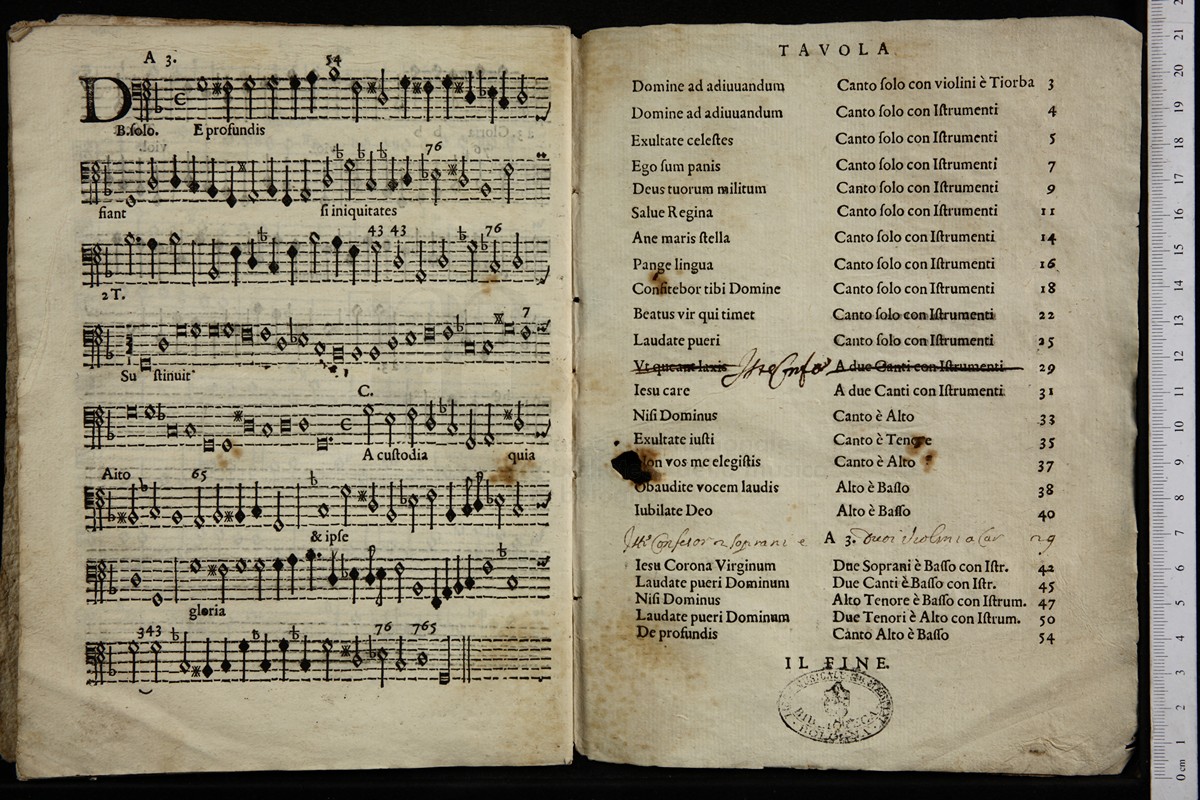 A 3.
54
D
B.ſolo. E profundis
76
fiant ſi iniquitates
43 43 76
2 T.
7
Su ſtinuit
C.
A cuſtodia quia
Aito 65
& ipſe
gloria
343 76 765
TAVOLA
Domine ad adiuuandum Canto ſolo con violini è Tiorba 3
Domine ad adiuuandum Canto ſolo con Iſtrumenti 4
Exultate celeſtes Canto ſolo con Iſtrumenti 5
Ego ſum panis Canto ſolo con Iſtrumenti 7
Deus tuorum militum Canto ſolo con Iſtrumenti 9
Salue Regina Canto ſolo con Iſtrumenti 11
Ane maris ſtella Canto ſolo con Iſtrumenti 14
Pange lingua Canto ſolo con Iſtrumenti 16
Confitebor tibi Domine Canto ſolo con Iſtrumenti 18
Beatus vir qui timet Canto ſolo con Iſtrumenti 22
Laudate pueri Canto ſolo con Iſtrumenti 25
Vt queant laxis A due Canti con Iſtrumenti 29
Iesu care A due Canti con Iſtrumenti 31
Niſi Dominus Canto è Alto 33
Exultate iuſti Canto è Tenore 35
Non vos me elegiſtis Canto è Alto 37
Obaudite vocem laudis Alto è Baſſo 38
Iubilate Deo Alto è Baſſo 40
A 3. 29
Iesu Corona Virginum Due Soprani è Baſſo con Iſtr. 42
Laudate pueri Dominum Due Canti è Baſſo con Iſtr. 45
Niſi Dominus Alto Tenore è Baſſo con Iſtrum. 47
Laudate pueri Dominum Due Tenori è Alto con Iſtrum. 50
De profundis Canto Alto è Baſſo 54
IL FINE.